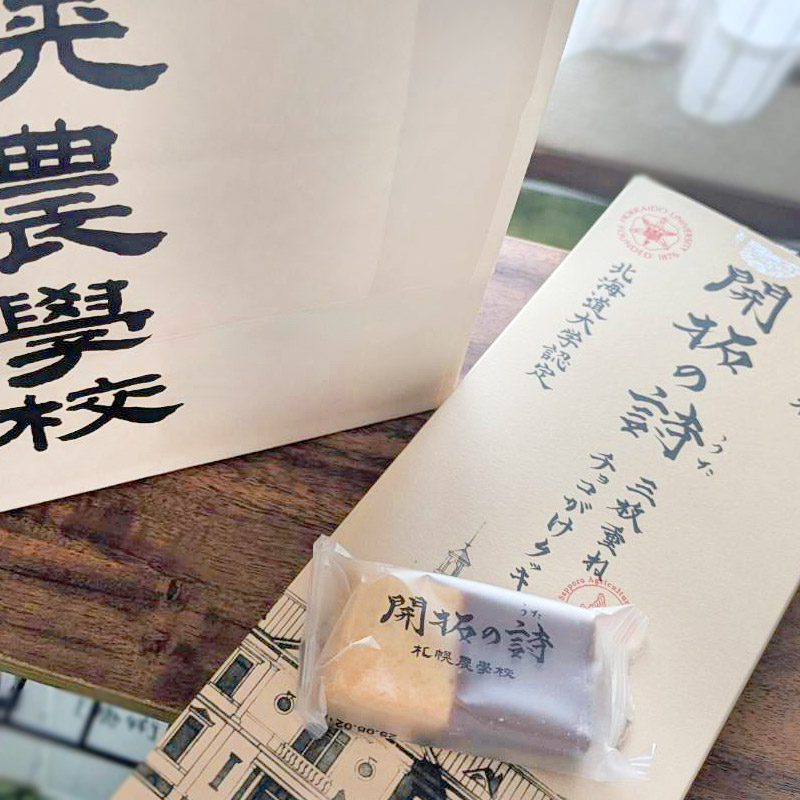 幌
農
學
校
HOKKAIDO UNIVERSITY
FOUNDED 1876
北海道大学認定
開拓の詩
うた
三枚重ね
チョコがけクッキ
Sapporo Agricultur
開拓の詩
うた
札幌農學校